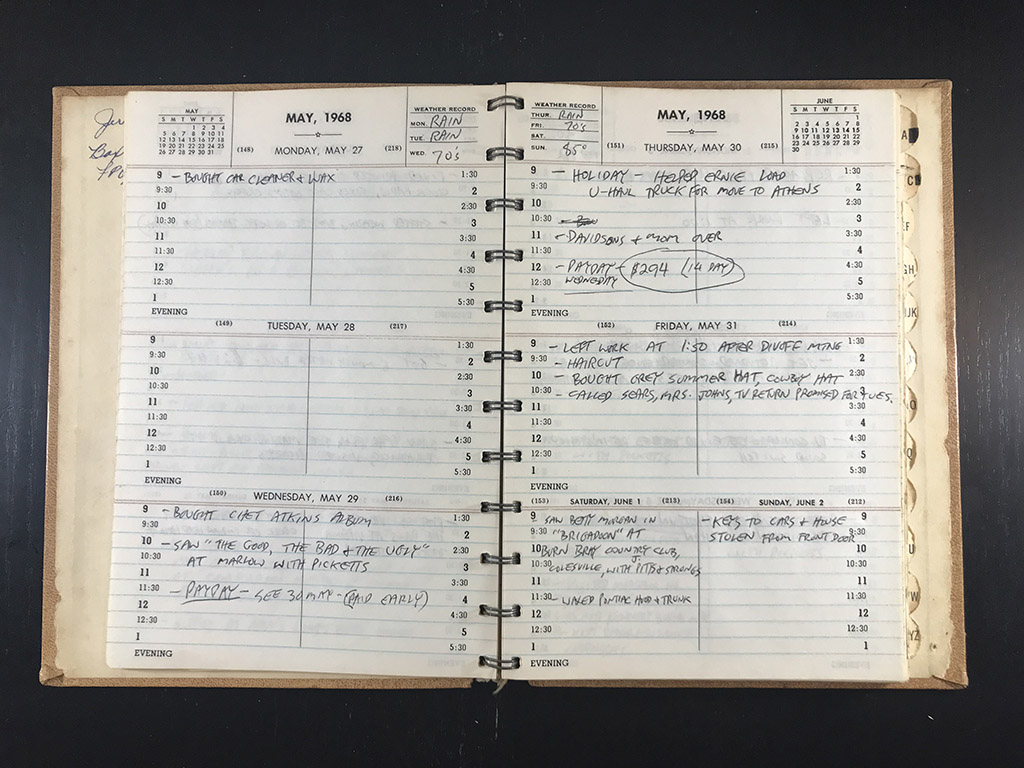 Jer
Bax
MAY
S M T W T F S
1 2 3 4
5 6 7 8 9 10 11
12 13 14 15 16 17 18
19 20 21 22 23 24 25
26 27 28 29 30 31
MAY, 1968
(148) MONDAY, MAY 27 (218)
WEATHER RECORD
MON. RAIN
TUE. RAIN
WED. 70's
9 - BOUGHT CAR CLEANER & WAX 1:30
9:30 2
10 2:30
10:30 3
11 3:30
11:30 4
12 4:30
12:30 5
1 5:30
EVENING
(149) TUESDAY, MAY 28 (217)
9 1:30
9:30 2
10 2:30
10:30 3
11 3:30
11:30 4
12 4:30
12:30 5
1 5:30
EVENING
(150) WEDNESDAY, MAY 29 (216)
9 - BOUGHT CHET ATKINS ALBUM 1:30
9:30 2
10 - SAW "THE GOOD, THE BAD & THE UGLY" 2:30
10:30 AT MARLOW WITH PICKETTS 3
11 3:30
11:30 - PAYDAY - SEE 30 MAY - (PAID EARLY) 4
12 4:30
12:30 5
1 5:30
EVENING
WEATHER RECORD
THUR. RAIN
FRI. 70's
SAT.
SUN. 85°
MAY, 1968
(151) THURSDAY, MAY 30 (215)
JUNE
S M T W T F S
1
2 3 4 5 6 7 8
9 10 11 12 13 14 15
16 17 18 19 20 21 22
23 24 25 26 27 28 29
30
9 - HOLIDAY - HELPED ERNIE LOAD 1:30
9:30 U-HAUL TRUCK FOR MOVE TO ATHENS 2
10 2:30
10:30 3
11 - DAVIDSONS & MOM OVER 3:30
11:30 4
12 - PAYDAY - $294 (14 DAY) 4:30
12:30 WEDNESDAY 5
1 5:30
EVENING
(152) FRIDAY, MAY 31 (214)
9 - LEFT WORK AT 1:50 AFTER DIVOFF MTNG 1:30
9:30 - HAIRCUT 2
10 - BOUGHT GREY SUMMER HAT, COWBOY HAT 2:30
10:30 - CALLED SEARS, MRS. JOHNS, TV RETURN PROMISED FOR TUES. 3
11 3:30
11:30 4
12 4:30
12:30 5
1 5:30
EVENING
(153) SATURDAY, JUNE 1 (213)
9 - SAW BETTY MORGAN IN
9:30 "BRIGADOON" AT
10 BURN BRAY COUNTRY CLUB,
10:30 COLESVILLE, WITH J. PITTS & STRONGS
11
11:30 - WAXED PONTIAC HOOD & TRUNK
12
12:30
1
EVENING
(154) SUNDAY, JUNE 2 (212)
- KEYS TO CARS & HOUSE 9
STOLEN FROM FRONT DOOR 9:30
10
10:30
11
11:30
12
12:30
1
A
C
EF
GH
IJK
O
Q
U
W
YZ